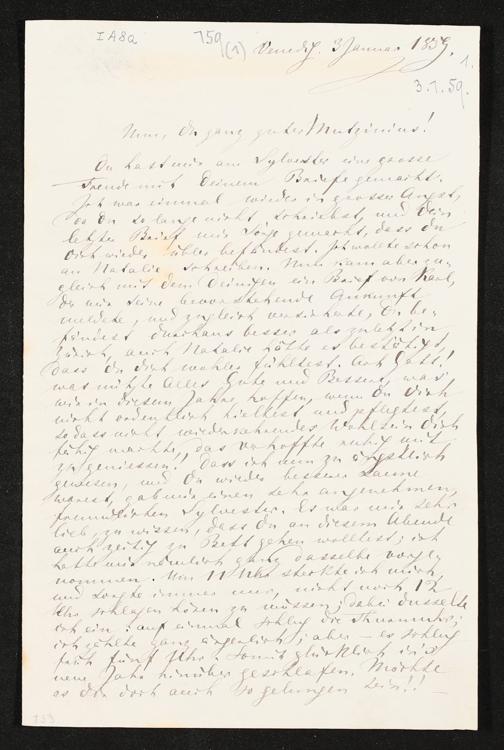 IA8a 159 (1) Venedig. 3 Januar 1859.
1.
3.1.59.
Nun, Du ganz guter Mutzinius!
Du hast mir am Sylvester eine grosse
Freude mit Deinem Briefe gemacht.
Ich war einmal wieder in grosser Angst,
da Du so lange nicht schriebst, und Dein
letzter Brief mir Sorge gemacht, dass Du
Dich wieder übler befändest. Ich wollte schon
an Natalie schreiben. Nun kam aber zu-
gleich mit dem Deinigen ein Brief von Karl,
der mir seine bevorstehende Ankunft
meldete, und zugleich versicherte, Du be-
findest durchaus besser als zuletzt in
Zürich, auch Natalie hätte es bestätigt,
dass Du Dich wohler fühltest. Ach Gott!
was nützte Alles Gute und Bessere, was
wir in diesem Jahre hoffen, wenn Du Dich
nicht ordentlich hieltest und pflegtest,
so dass nicht wiederkehrendes Wohlsein Dich
fähig machte, das Erhoffte ruhig mit
zu geniessen. Dass ich nun zu ängstlich
gewesen, und Du wieder besserer Laune
warest, gab mir einen sehr angenehmen,
freundlichen Sylvester. Es war mir sehr
lieb, zu wissen, dass Du an diesem Abende
auch zeitig zu Bett gehen wolltest; ich
hatte mir nämlich ganz dasselbe vorge-
nommen. Um 11 Uhr steckte ich mich
und sorgte immer nur, nicht noch 12
Uhr schlagen hören zu müssen; dabei dusselte
ich ein: auf einmal schlug die Thurmuhr;
ich zählte ganz ärgerlich; aber – es schlug
früh fünf Uhr. Somit glücklich in's
neue Jahr hinüber geschlafen. Möchte
es Dir doch auch so gelungen sein!! –